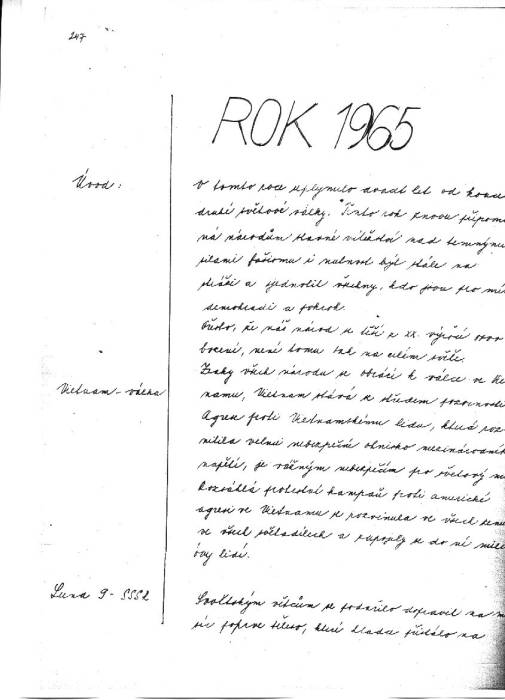 247
ROK 1965
Úvod:
V tomto roce uplynulo dvacet let od konce
druhé světové války. Tento rok znovu připomí
ná národům slavné vítězství nad temnými
silami fašismu i nutnost být stále na
stráži a sjednotit všechny, kdo jsou pro mír
demokracii a pokrok.
Přesto, že náš národ se těší z xx. výročí osvo
bození, není tomu tak na celém světě.
Vietnam - válka
Zraky všech národů se obrací k válce ve Viet
namu, Vietnam stává se středem pozornosti
Agrese proti Vietnamskému lidu, která roz
nítila velmi nebezpečné ohnisko mezinárodního
napětí, je vážným nebezpečím pro světový mír
Rozsáhlá protestní kampaň proti americké
agresi ve Vietnamu se rozvinula ve všech zemích
ve všech světadílech a zapojily se do ní mili
óny lidí.
Luna 9 - SSSR
Sovětským vědcům se podařilo dopravit na mě
síc poprve těleso, které hladce přistálo na